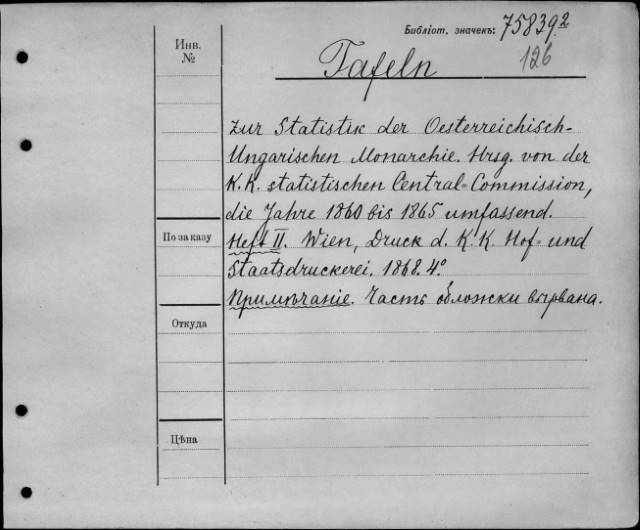 Библіот. значекъ: 75839.2
126
Инв.
№
Tafeln
zur Statistik der Oesterreichisch-
Ungarischen Monarchie. Hrsg. von der
K. K. statistischen Central-Commission,
die Jahre 1860 bis 1865 umfassend.
По заказу
Heft II. Wien, Druck d. K. K. Hof- und
Staatsdruckerei. 1868. 4°.
Примѣчаніе. Часть обложки вырвана.
Откуда
Цѣна